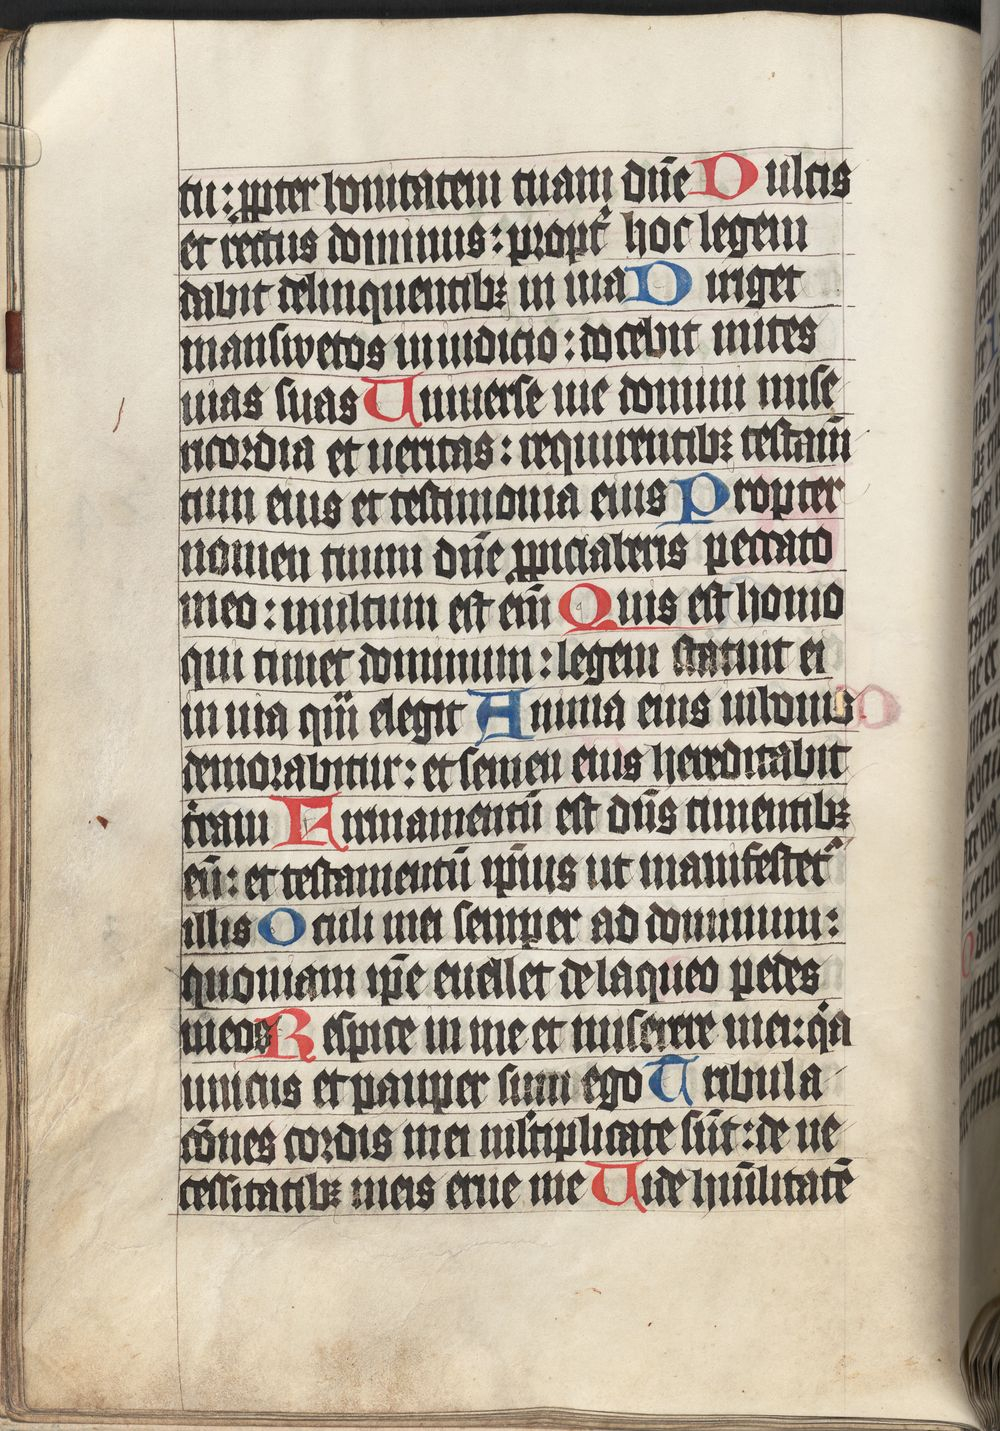 tu: ꝓpter bonitatem tuam dn̄e Dulcis
et rectus dominus: propt̉ hoc legem
dabit delinquentibꝫ in uia Diriget
mansuetos in iudicio: docebit mites
uias suas Uniuerse uie domini mise
ricordia et ueritas: requirentibꝫ testam̄
tum eius et testimonia eius Propter
nomen tuum dn̄e ꝓpiciaberis peccato
meo: multum est eni̅ Quis est homo
qui timet dominum: legem statuit ei
in uia qua̅ elegit Anima eius in bonis
demorabitur: et semen eius hereditabit
t̉ram Firmamentū est dn̄s timentibꝫ
eū: et testamentū ip̄ius ut manifestet̉
illis Oculi mei semper ad dominum:
quoniam ip̄e euellet de laqueo pedes
meos Respice in me et miserere mei: qͣa
unicus et pauper sum ego Tribula
c̄ones cordis mei ml̄tiplicate sūt: de ne
cessitatibꝫ meis erue me Uide hūilitatē